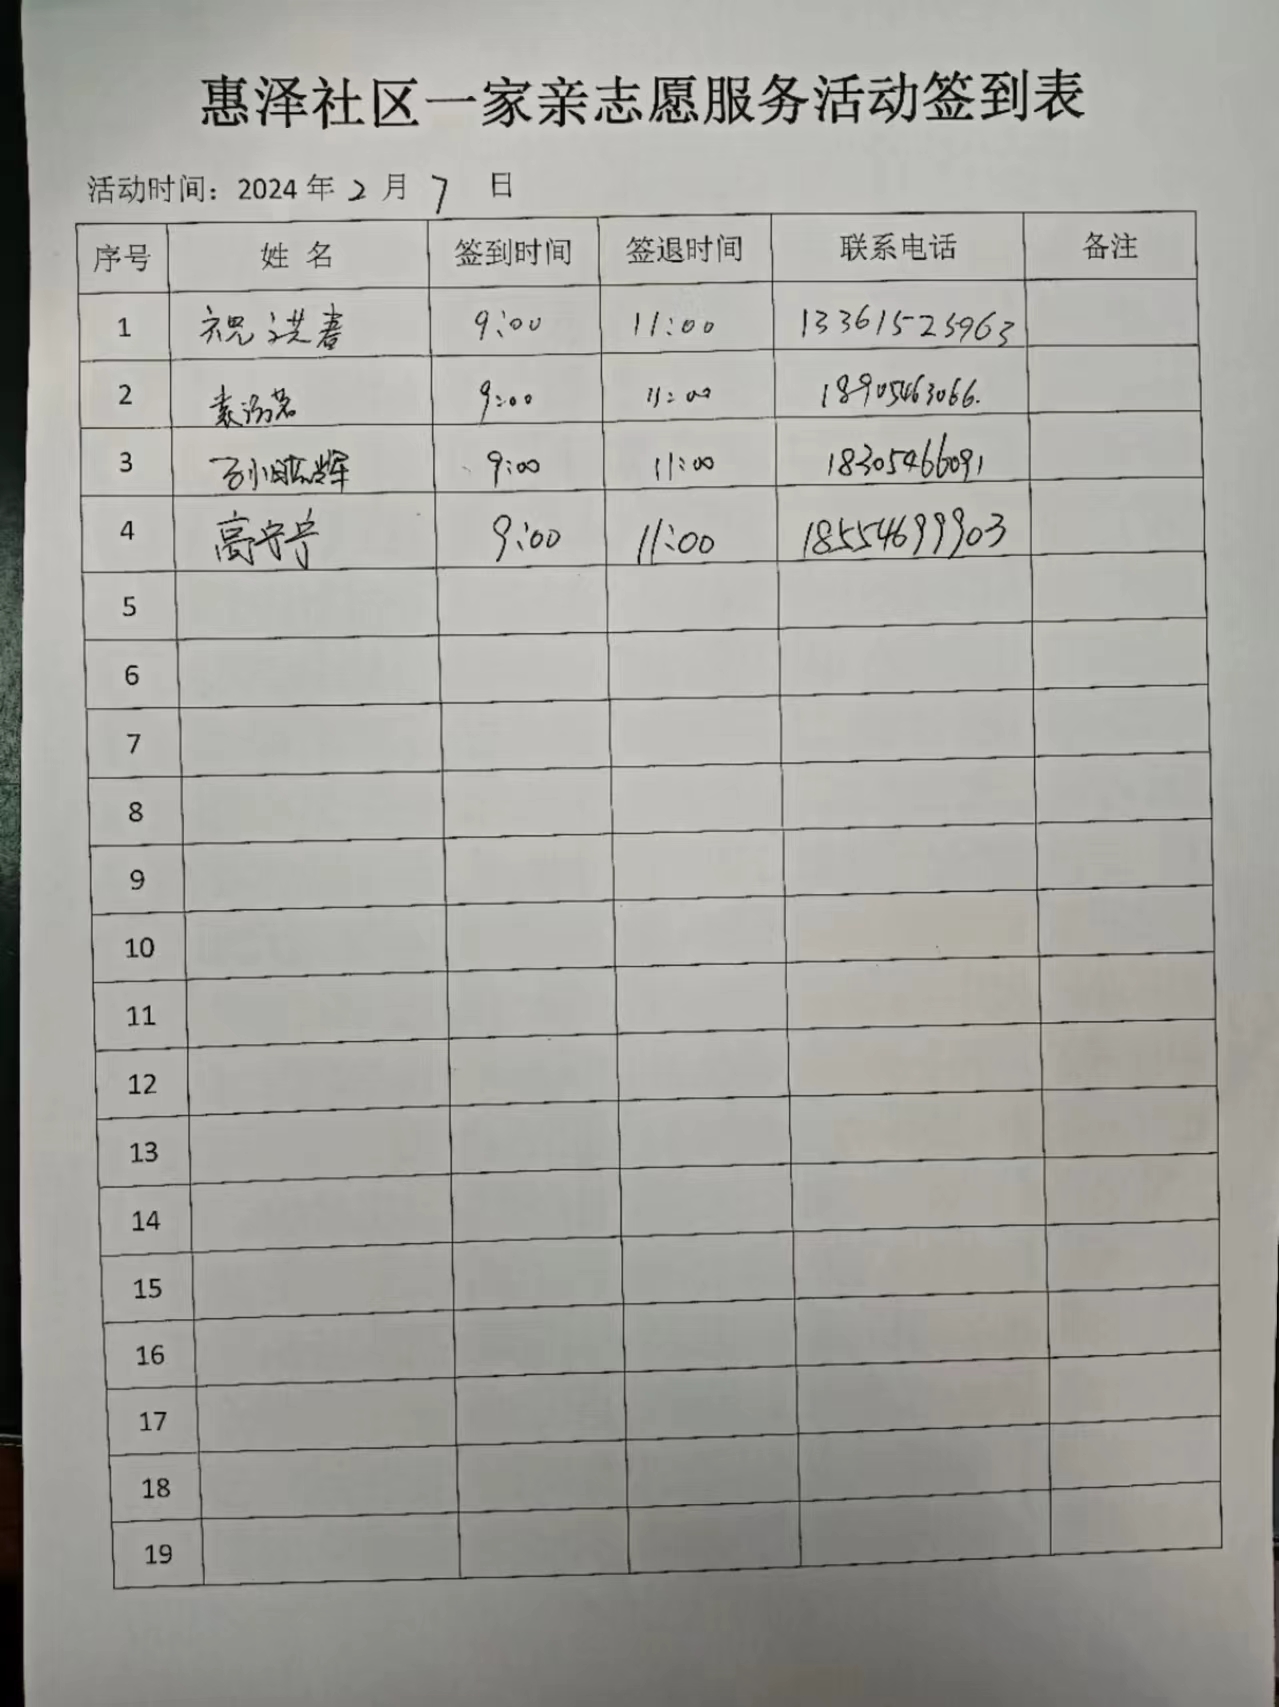 惠泽社区一家亲志愿服务活动签到表
活动时间：2024 年 2 月 7 日
序号 姓 名 签到时间 签退时间 联系电话 备注
1 祝洪春 9:00 11:00 13361523963
2 9:00 11:00 18905463066.
3 9:00 11:00 18305466091
4 高守宁 9:00 11:00 18554699903
5
6
7
8
9
10
11
12
13
14
15
16
17
18
19